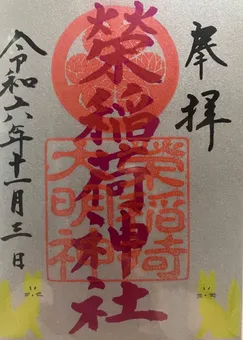 奉拝
榮稲荷神社
榮稲荷
大明神
令和六年十一月三日